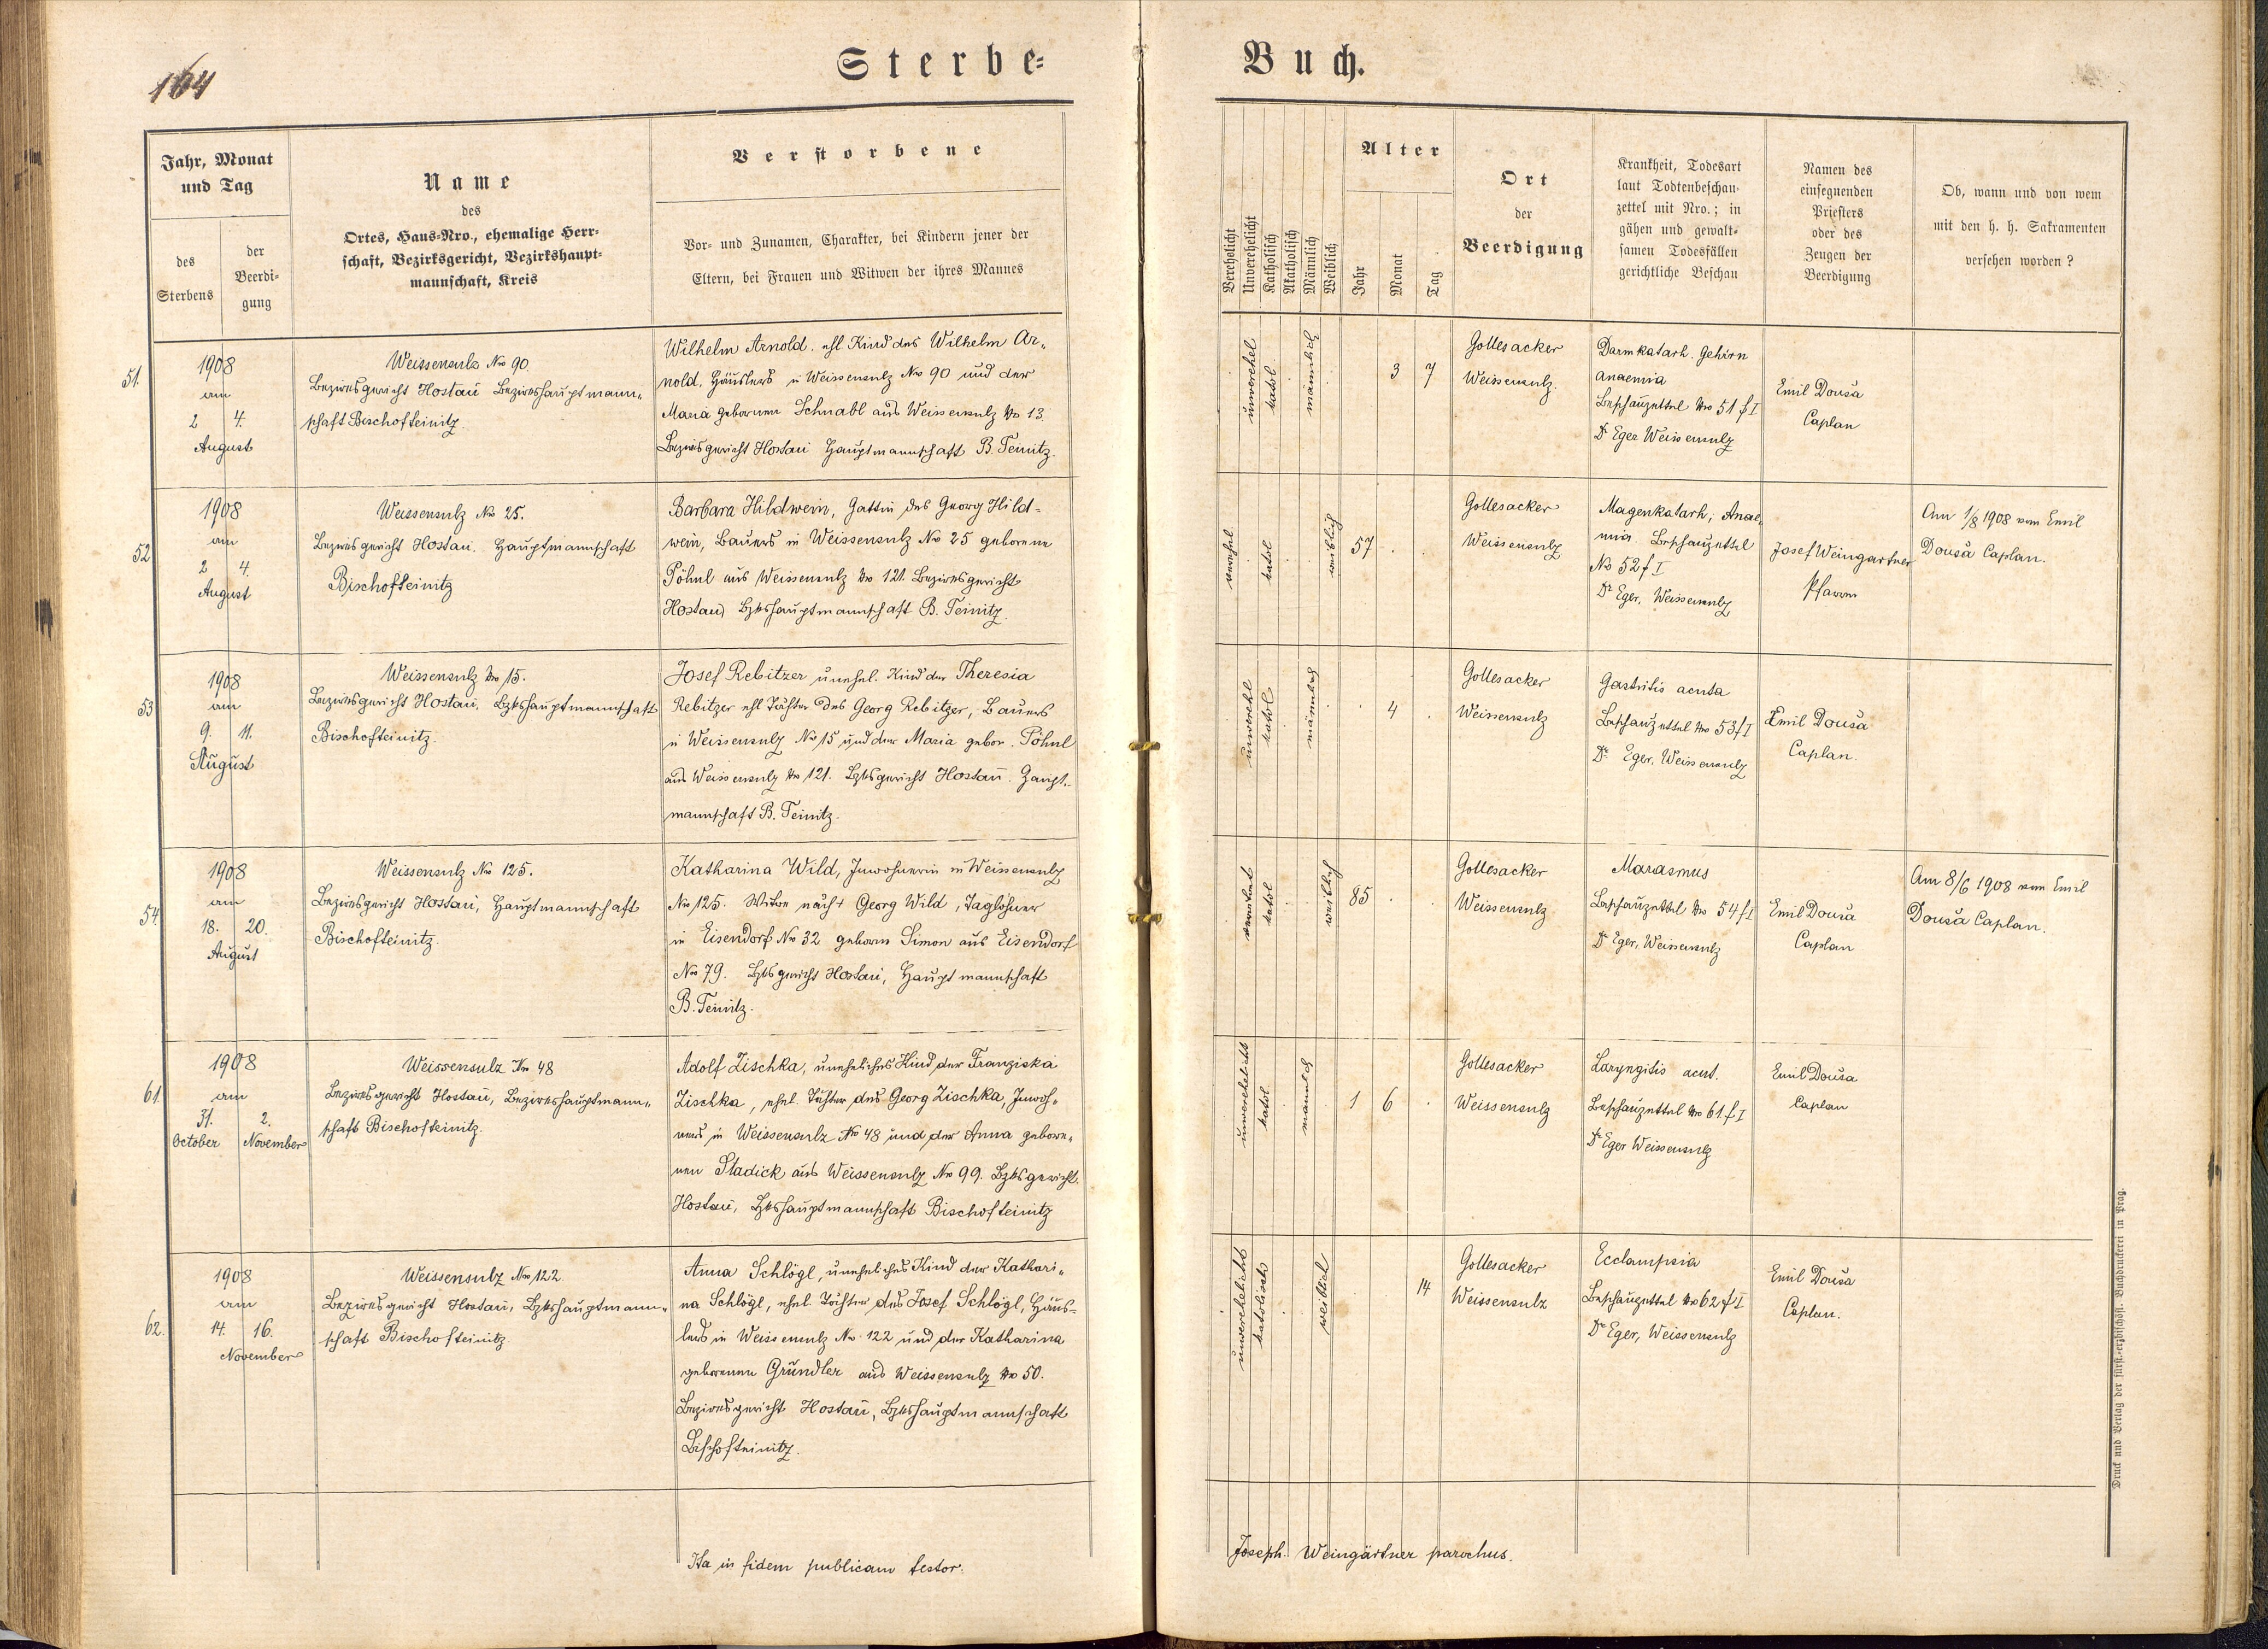 164
Sterbe=
Buch.
Jahr, Monat
und Tag
des
Sterbens
der
Beerdi-
gung
Name
des
Ortes, Haus-Nro., ehemalige Herr-
schaft, Bezirksgericht, Bezirkshaupt-
mannschaft, Kreis
Verstorbene
Vor- und Zunamen, Charakter, bei Kindern jener der
Eltern, bei Frauen und Witwen der ihres Mannes
Verehelicht
Unverehelicht
Katholisch
Akatholisch
Männlich
Weiblich
Alter
Jahr
Monat
Tag
Ort
der
Beerdigung
Krankheit, Todesart
laut Todtenbeschau-
zettel mit Nro.; in
gähen und gewalt-
samen Todesfällen
gerichtliche Beschau
Namen des
einsegnenden
Priesters
oder des
Zeugen der
Beerdigung
Ob, wann und von wem
mit den h. h. Sakramenten
versehen worden?
51.
1908
am
2 4.
August
Weissensulz No 90.
Bezirksgericht Hostau Bezirkshauptmann-
schaft Bischofteinitz.
Wilhelm Arnold. ehl Kind des Wilhelm Ar-
nold, Häuslers in Weissensulz No 90 und der
Maria gebornen Schnabl aus Weissensulz No 13.
Bezirksgericht Hostau Hauptmannschaft B. Teinitz.
unverehel
katol.
männlich
3 7
Gottesacker
Weissensulz.
Darmkatarh. Gehirn
anaemia
Beschauzettel No 51 f I
Dr Eger Weissensulz
Emil Dousa
Caplan
52
1908
am
2 4.
August
Weissensulz No 25.
Bezirksgericht Hostau. Hauptmannschaft
Bischofteinitz
Barbara Hildwein, Gattin des Georg Hild-
wein, Bauers in Weissensulz No 25 geborene
Pöhnl aus Weissensulz No 121. Bezirksgericht
Hostau, Bzkshauptmannschaft B. Teinitz.
verehel
katol
weiblich
57
Gottesacker
Weissensulz
Magenkatarh, Anae-
mia. Beschauzettel
No 52 f I
Dr Eger, Weissensulz
Josef Weingartner
Pfarrer
Am 1/8 1908 vom Emil
Dousa Caplan.
53
1908
am
9. 11.
August
Weissensulz No 15.
Bezirksgericht Hostau, Bzkshauptmannschaft
Bischofteinitz.
Josef Rebitzer unehel. Kind der Theresia
Rebitzer ehl Tochter des Georg Rebitzer, Bauers
in Weissensulz No 15 und der Maria gebor. Pöhnl
aus Weissensulz No 121. Bzksgericht Hostau. Haupt-
mannschaft B. Teinitz.
unverehl
katol
männlich
4
Gottesacker
Weissensulz
Gastritis acuta
Beschauzettel No 53 f I
Dr Eger, Weissensulz
Emil Dousa
Caplan.
54.
1908
am
18. 20.
August
Weissensulz No 125.
Bezirksgericht Hostau, Hauptmannschaft
Bischofteinitz.
Katharina Wild, Inwohnerin in Weissensulz
No 125. Witwe nach + Georg Wild, Taglöhner
in Eisendorf No 32 geborne Simon aus Eisendorf
No 79. Bzksgericht Hostau, Hauptmannschaft
B. Teinitz.
verwitwet
katol
weiblich
85
Gottesacker
Weissensulz
Marasmus
Beschauzettel No 54 f I
Dr Eger, Weissensulz
Emil Dousa
Caplan
Am 8/6 1908 vom Emil
Dousa Caplan.
61.
1908
am
31. 2.
October November
Weissensulz No 48
Bezirksgericht Hostau, Bezirkshauptmann-
schaft Bischofteinitz.
Adolf Zischka, uneheliches Kind der Franziska
Zischka, ehel. Tochter des Georg Zischka, Inwoh-
ners in Weissensulz No 48 und der Anna gebore-
nen Stadick aus Weissensulz No 99. Bzksgericht
Hostau, Bzkshauptmannschaft Bischofteinitz
unverehelicht
katol.
männlich
1 6
Gottesacker
Weissensulz
Laryngitis acut.
Beschauzettel No 61 f I
Dr Eger Weissensulz
Emil Dousa
Caplan
62.
1908
am
14. 16.
November
Weissensulz No 122
Bezirksgericht Hostau, Bzkshauptmann-
schaft Bischofteinitz
Anna Schlögl, uneheliches Kind der Kathari-
na Schlögl, ehel. Tochter des Josef Schlögl, Häus-
lers in Weissensulz No 122 und der Katharina
geborenen Gründler aus Weissensulz No 50.
Bezirksgericht Hostau, Bzkshauptmannschaft
Bischofteinitz.
unverehelicht
katolisch
weiblich
14
Gottesacker
Weissensulz
Ecclampsia
Beschauzettel No 62 f I
Dr Eger, Weissensulz
Emil Dousa
Caplan.
Ita in fidem publicam testor.
Joseph Weingärtner parochus.
Druck und Verlag der fürst.-erzbischöfl. Buchdruckerei in Prag.